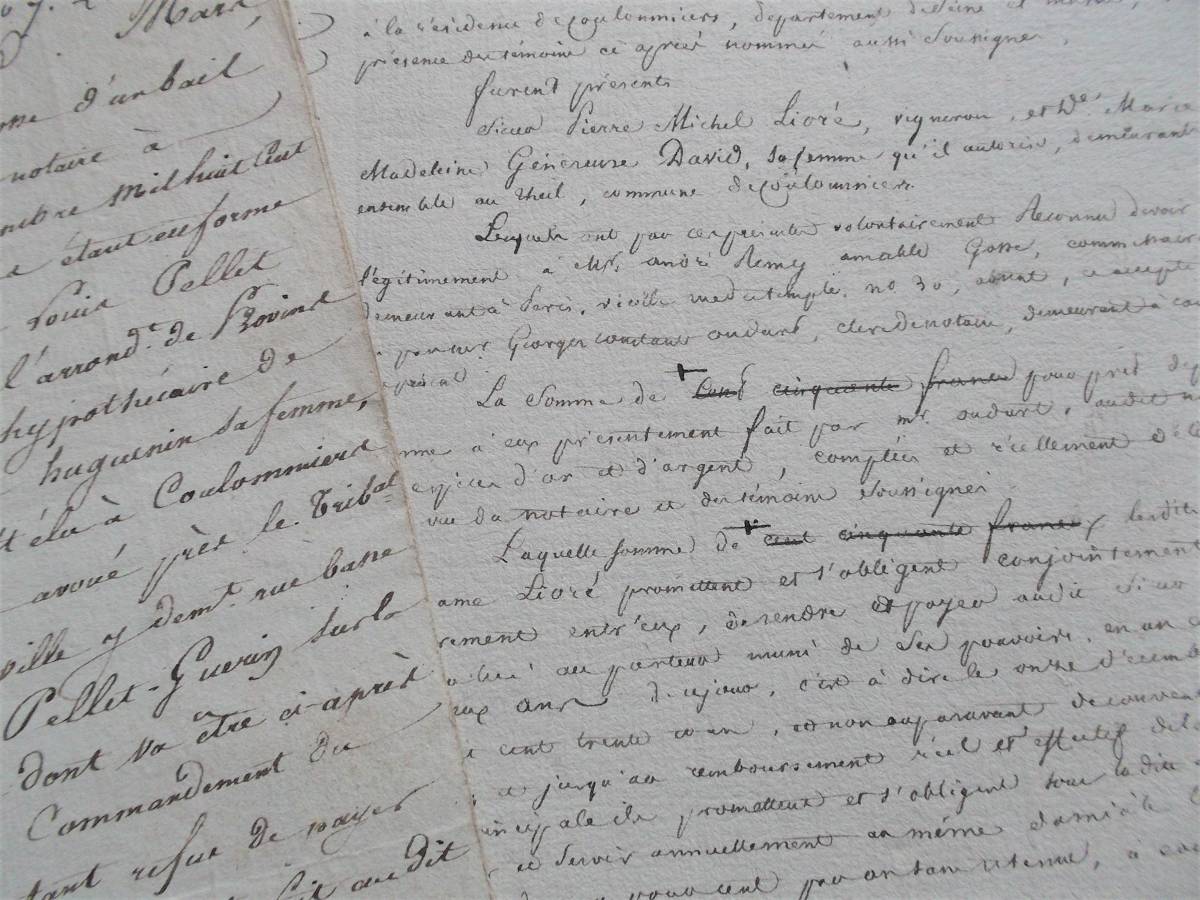 Mara
d'un bail
notaire à
mil huit cent
étant en forme
Louis Pellet
l'arrondt. de Provins
hypothécaire de
huguenin sa femme,
élu à Coulommiers
avoué près le Tribal
ville y demt. rue basse
Pellet-Guerin sur la
dont va être ci-après
Commandement du
refus de payer
au dit
à la résidence de Coulommiers, département de Seine et marne,
présence des témoins ci après nommés aussi soussignés.
furent présents
Sieur Pierre Michel Lioré, vigneron, et De. Marie
Madeleine Généreuse David, sa femme qu'il autorise, demeurants
ensemble au theil, commune de Coulommiers.
Lesquels ont par ces présentes volontairement Reconnu devoir
légitimement à Mr. andré Remy amable Gosse,
demeurant à Paris, vieille rue du temple, no 30, absent, ce accepté
Georges constant oudart, clerc de notaire, demeurant à
présent
La Somme de cent cinquante francs pour prêt
à eux présentement fait par mr. oudart, audit
espèces d'or et d'argent, comptés et réellement
vue du notaire et des témoins soussignés.
Laquelle somme de cent cinquante francs lesdits
ame Lioré promettent et s'obligent conjointement
rement entr'eux, de rendre et payer audit Sieur
au porteur muni de ses pouvoirs, en
ans de ce jour, c'est à dire le onze décemb
cent trente et un, et non auparavant de conven
jusqu'au remboursement réel et effectif de la
incipale ils promettent et s'obligent sous la dite
servir annuellement au même domicile
pour cent par an sans retenue, à